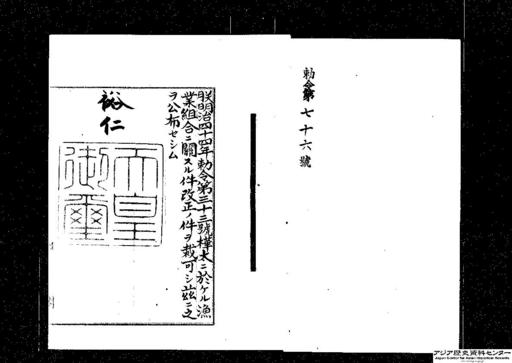 勅令第七十六號
朕明治四十四年勅令第三十三號樺太ニ於ケル漁
業組合ニ關スル件改正ノ件ヲ裁可シ茲ニ之
ヲ公布セシム
裕仁
天皇
御璽
アジア歴史資料センター
Japan Center for Asian Historical Records